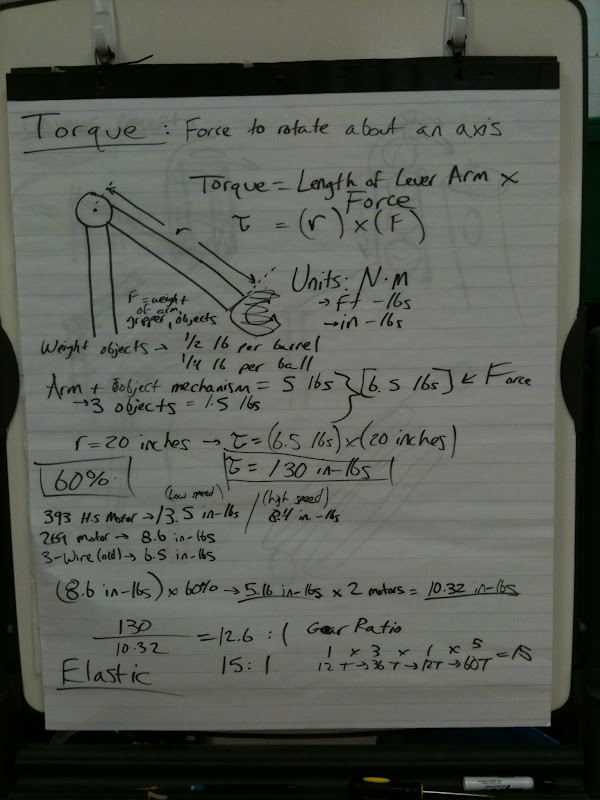 Torque : Force to rotate about an axis
Torque = Length of Lever Arm x
Force
τ = (r) x (F)
r
Units: N·m
→ Ft - lbs
→ in - lbs
F = weight
of arm,
gripper, objects
Weight objects → 1/2 lb per barrel
1/4 lb per ball
Arm + object mechanism = 5 lbs } [6.5 lbs] ← Force
→ 3 objects = 1.5 lbs
r = 20 inches → τ = (6.5 lbs) x (20 inches)
τ = 130 in-lbs
60%
(low speed) (high speed)
393 H.S Motor → 13.5 in-lbs / 8.4 in-lbs
269 motor → 8.6 in-lbs
3-Wire (old) → 6.5 in-lbs
(8.6 in-lbs) x 60% → 5.16 in-lbs x 2 motors = 10.32 in-lbs
130/10.32 = 12.6 : 1 Gear Ratio
15 : 1
1 x 3 x 1 x 5 = 15
12T → 36T → 12T → 60T
Elastic